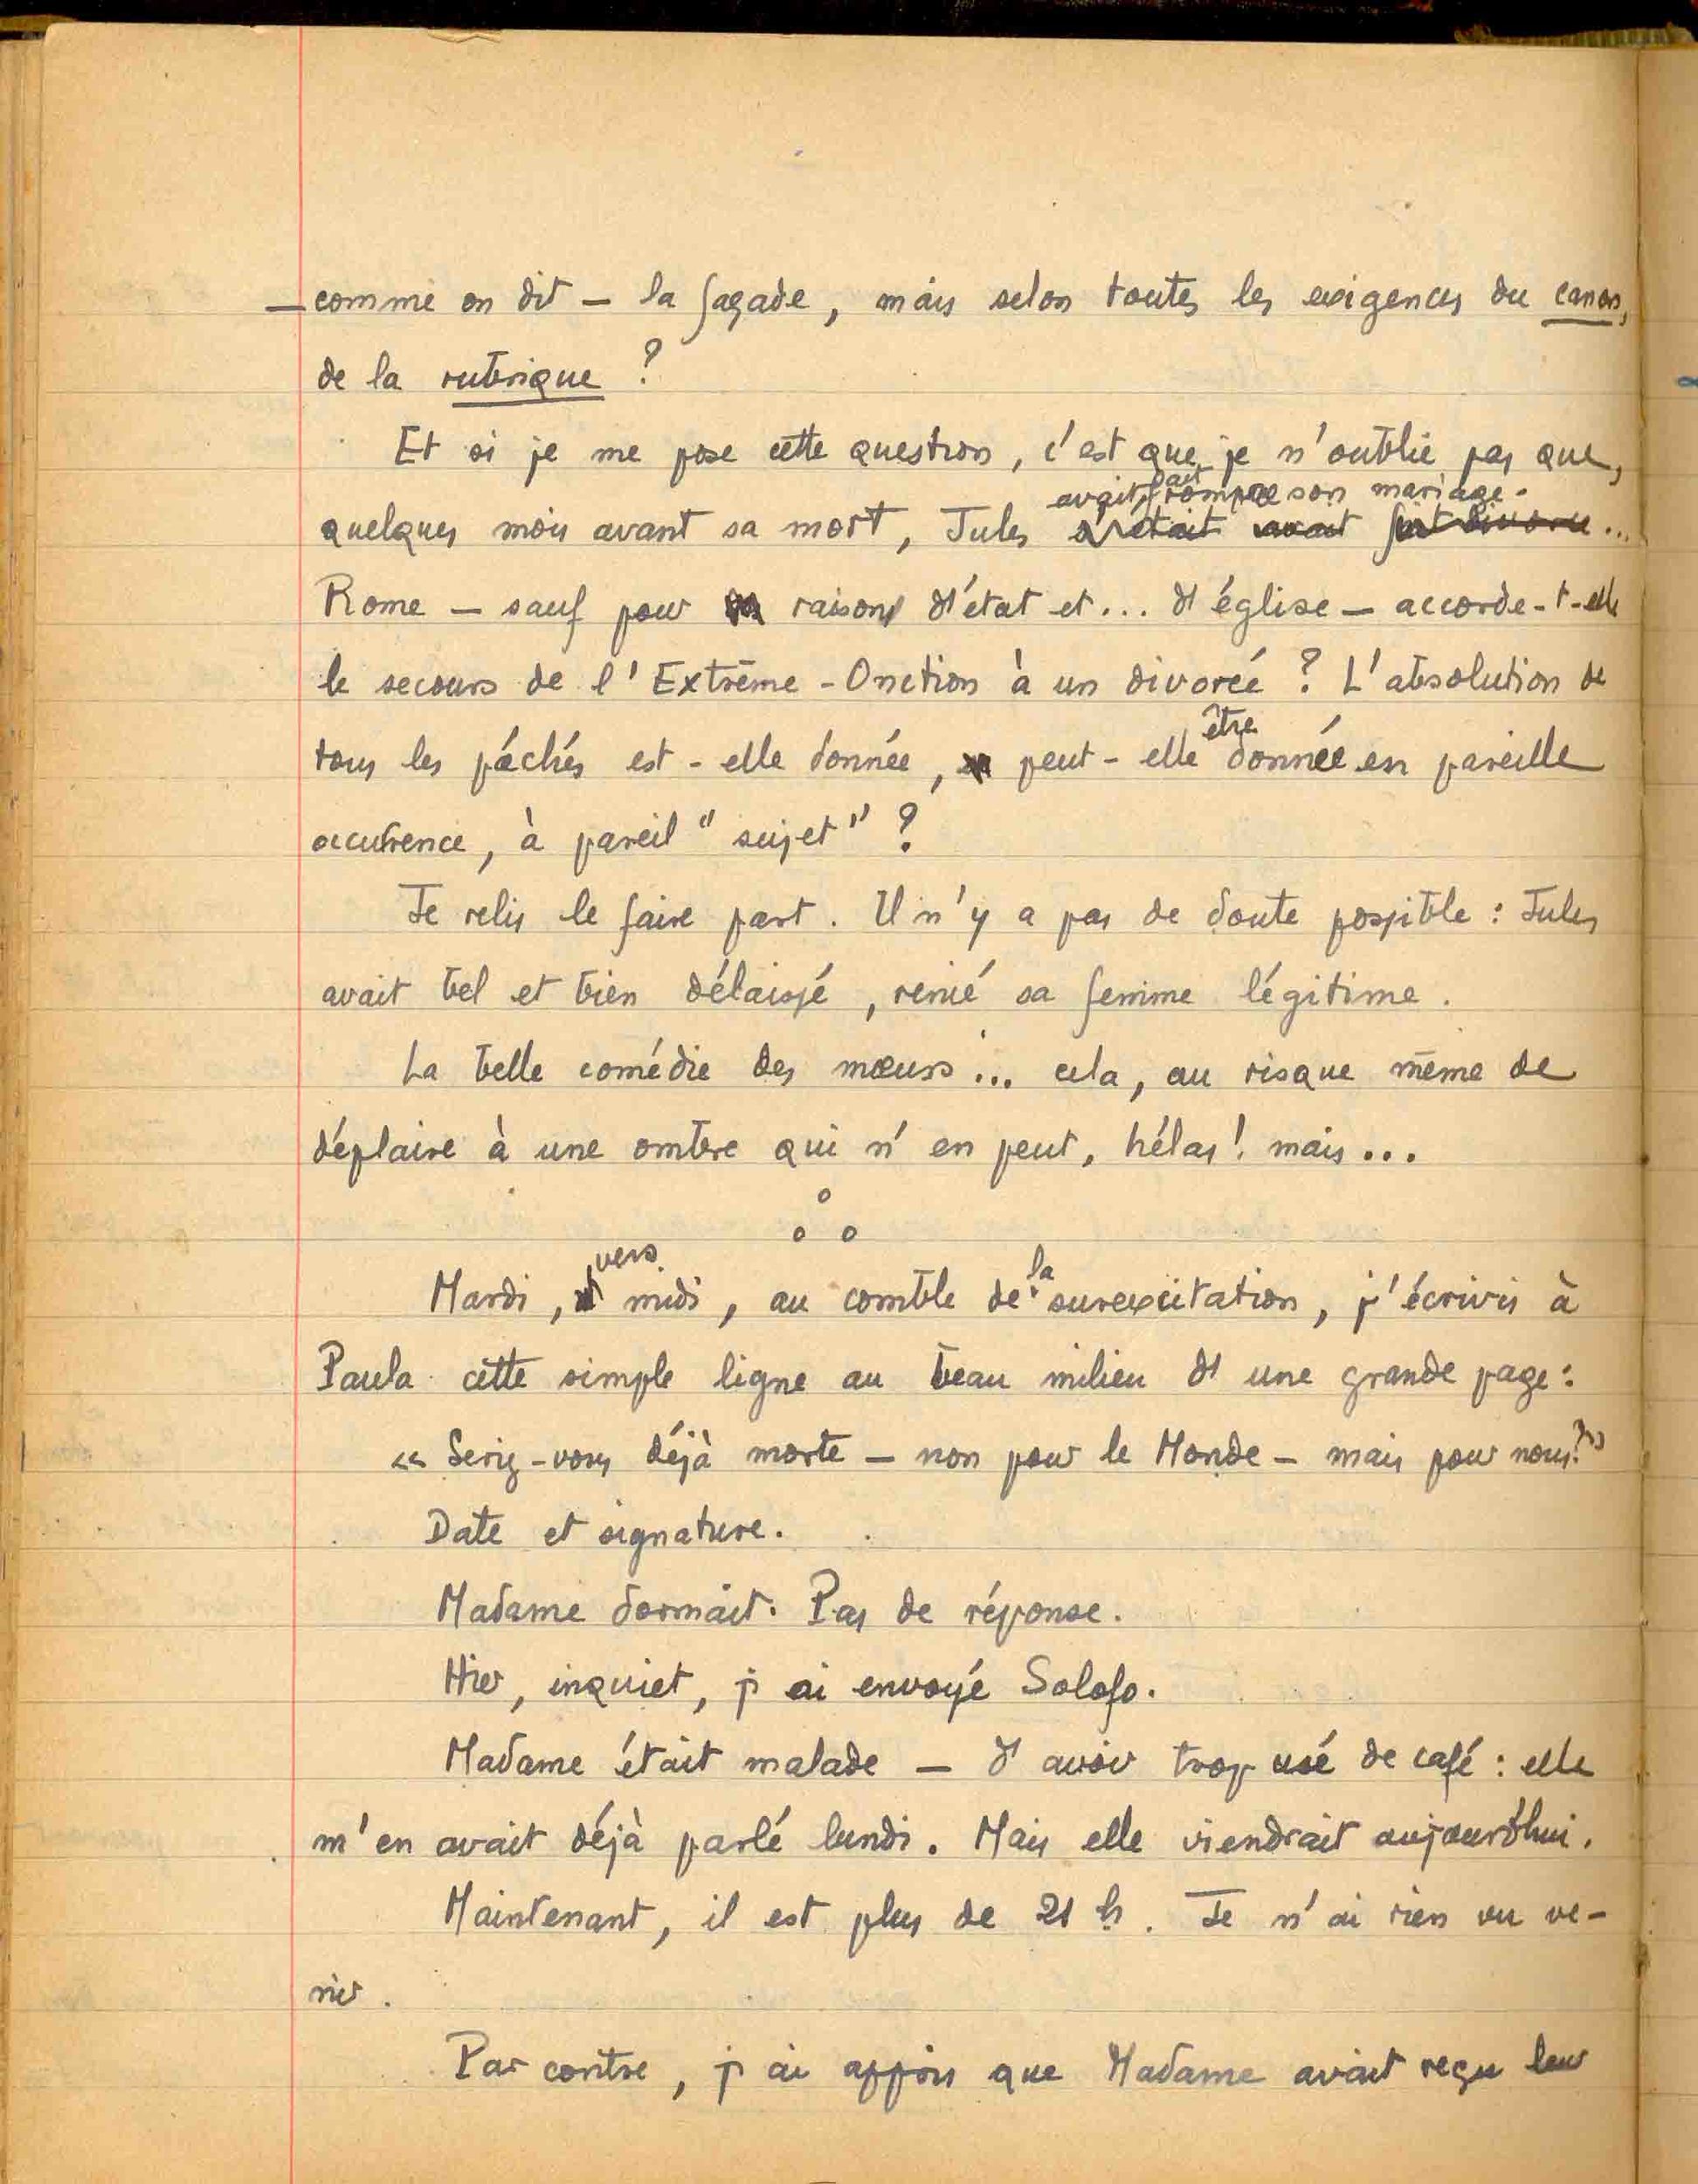 — comme on dit — la façade, mais selon toutes les exigences du canon,
de la rubrique ?
Et si je me pose cette question, c'est que je n'oublie pas que,
avait fait rompre son mariage.
quelques mois avant sa mort, Jules s'était avait fait divorce...
Rome — sauf pour raisons d'état et... d'église — accorde-t-elle
le secours de l'Extrême-Onction à un divorcé ? L'absolution de
être
tous les péchés est-elle donnée, peut-elle donnée en pareille
occurence, à pareil "sujet" ?
Je relis le faire part. Il n'y a pas de doute possible : Jules
avait bel et bien délaissé, renié sa femme légitime.
La belle comédie des mœurs... cela, au risque même de
déplaire à une ombre qui n'en peut, hélas! mais...
° ° °
vers
la
Mardi, midi, au comble de surexcitation, j'écrivis à
Paula cette simple ligne au beau milieu d'une grande page :
« Seriez-vous déjà morte — non pour le Monde — mais pour nous? »
Date et signature.
Madame dormait. Pas de réponse.
Hier, inquiet, j'ai envoyé Solofo.
Madame était malade — d'avoir trop usé de café : elle
m'en avait déjà parlé lundi. Mais elle viendrait aujourd'hui.
Maintenant, il est plus de 21 h. Je n'ai rien vu ve-
nir.
Par contre, j'ai appris que Madame avait reçu leur